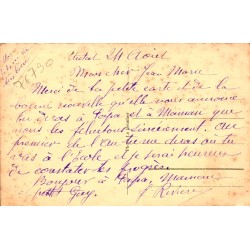 24 Août
Mon cher Jean Marie
Merci de ta petite carte et de la
bonne nouvelle qu'elle nous annonce
tu diras à Papa et à Maman que
nous les félicitons sincèrement. Au
premier de l'an tu me diras où tu
vas à l'École et je serai heureux
de constater tes progrès
Bonjour à Papa, Maman
petit Guy. J. Rivière
76790